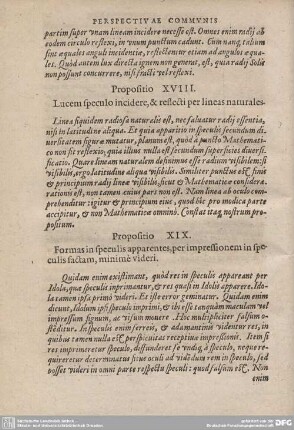 PERSPECTIVAE COMMVNIS
partim super vnam lineam incidere necesse est. Omnes enim radij ab
eodem circulo reflexi, in vnum punctum cadunt. Cum nanq; tales
sint æquales anguli incidentiæ, reflectentur etiam ad angulos æqua-
les. Quòd autem lux directa ignem non generat, est, quia radij Solis
non possunt concurrere, nisi fracti vel reflexi.
Propositio XVIII.
Lucem speculo incidere, & reflecti per lineas naturales.
Linea siquidem radiosa naturalis est, nec saluatur radij essentia,
nisi in latitudine aliqua. Et quia apparitio in speculis secundum di-
uersitatem figuræ mutatur, planum est, quòd à puncto Mathemati-
co non fit reflexio, quia illius nulla est secundum superficies diuersi-
ficatio. Quare lineam naturalem definimus esse radium visibilem: si
visibilis, ergo latitudine aliqua visibilis. Similiter punctus etsi finis
& principium radij lineæ visibilis, sicut & Mathematicæ conside-
rationi est, non tamen eius pars non est. Nam linea ab oculo com-
prehenditur eius, quod hic pro modica parte
accipitur, & non Mathematicè omninò. Constat itaq; nostrum pro-
positum.
Propositio XIX.
Formas in speculis apparentes, per impressionem in spe-
culis factam, minimè videri.
Quidam enim existimant, quòd res in speculis appareant per
Idola, quæ speculis imprimantur, & res quasi in Idolis apparere. Ido-
la tamen ipsa primò videri. Et iste error geminatur. Quidam enim
dicunt, Idolum ipsi speculi imprimi, & ibi esse tanquam maculam vel
impressum signum, ac visum mouere. Hoc multipliciter falsum o-
stenditur. In speculis enim ferreis, & adamantinis videntur res, in
quibus tamen nulla est perspicuitas receptiua impressionis. Item si
res imprimeretur speculo, diffunderet se vndiq; à speculo, neq; re-
quireretur determinatus situs oculi ad videndum rem in speculo, sed
posset videri in omni parte respectu speculi: quod falsum est. Non
enim